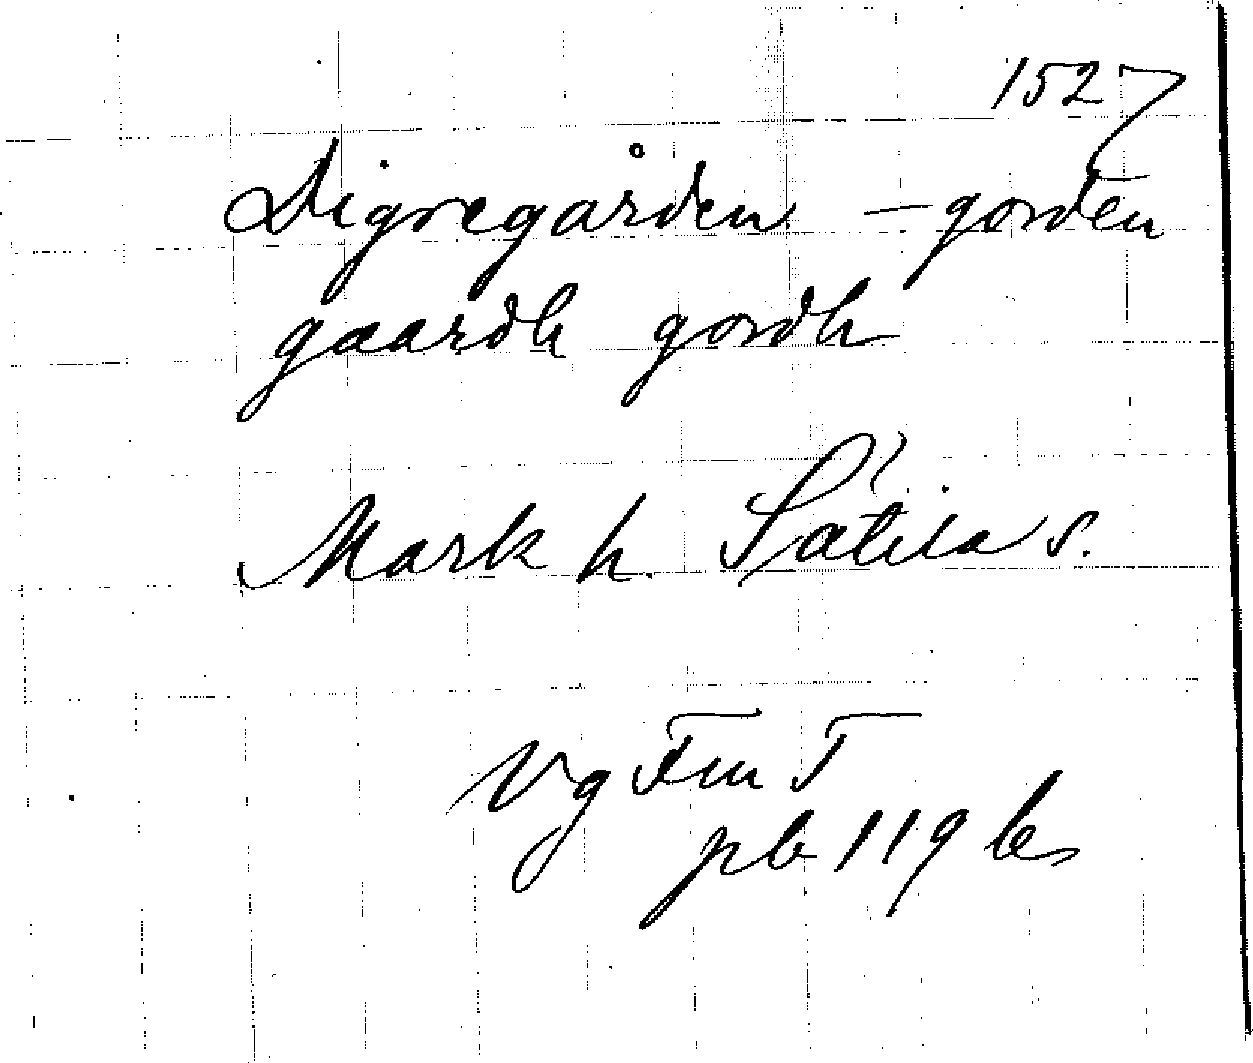 1527
Digregården – gorden
gaardh gordh
Mark h. Sätila s.
Vg Fm T
pb 119 b